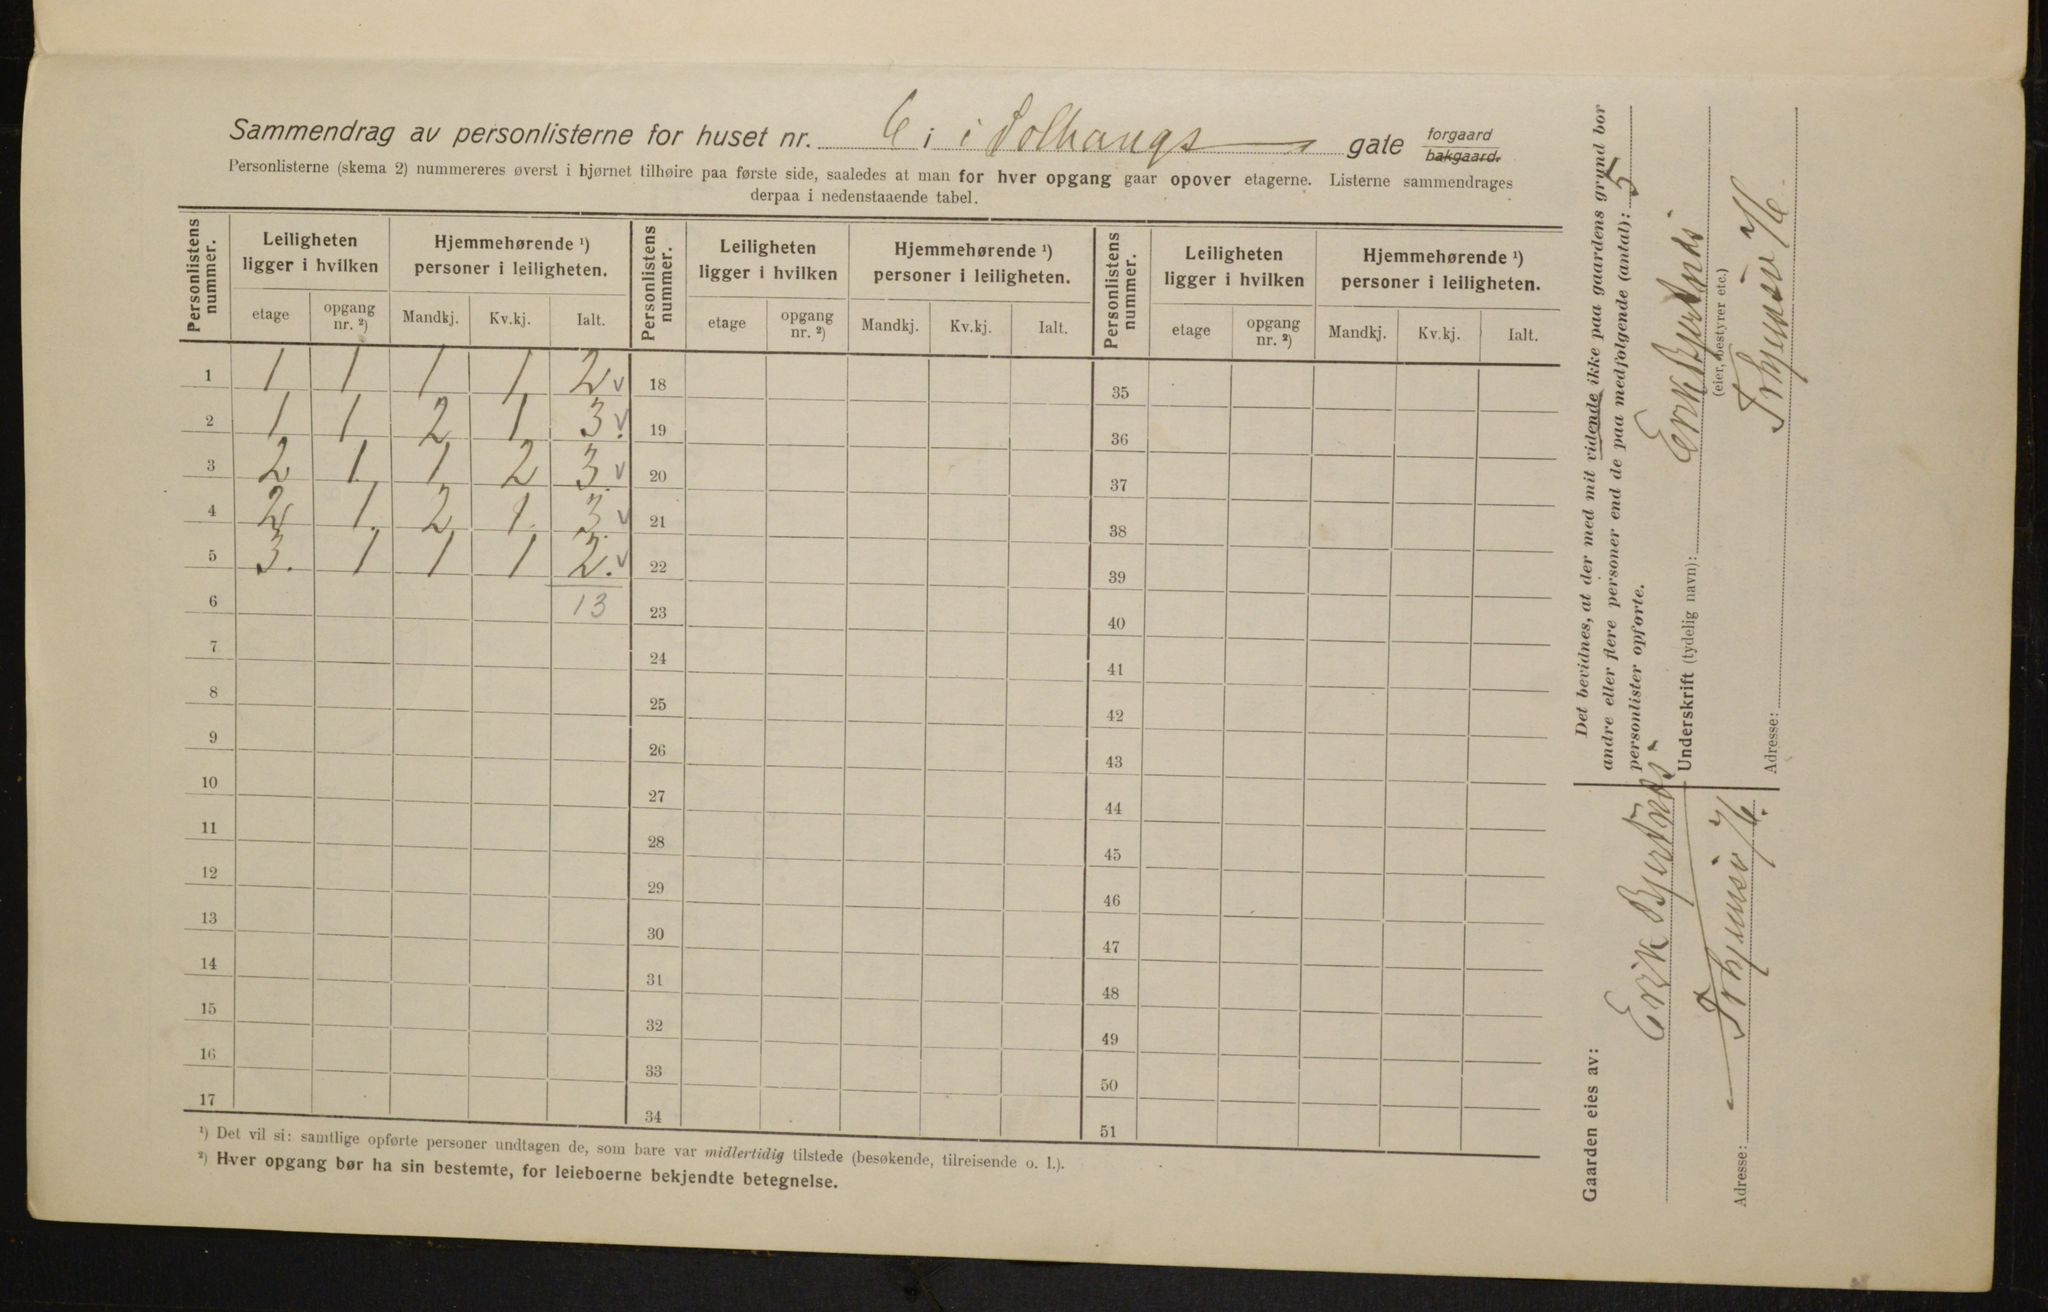 Sammendrag av personlisterne for huset nr. 6 i Solhaugs gate forgaard bakgaard.
Personlisterne (skema 2) nummereres øverst i hjørnet tilhøire paa første side, saaledes at man for hver opgang gaar opover etagerne. Listerne sammendrages
derpaa i nedenstaaende tabel.
Personlistens nummer. Leiligheten ligger i hvilken Hjemmehørende ¹) personer i leiligheten. Personlistens nummer. Leiligheten ligger i hvilken Hjemmehørende ¹) personer i leiligheten. Personlistens nummer. Leiligheten ligger i hvilken Hjemmehørende ¹) personer i leiligheten.
etage opgang nr. ²) Mandkj. Kv.kj. Ialt. etage opgang nr. ²) Mandkj. Kv.kj. Ialt. etage opgang nr. ²) Mandkj. Kv.kj. Ialt.
1 1 1 1 1 2 v 18 35
2 1 1 2 1 3. v 19 36
3 2 1 1 2 3 v 20 37
4 2 1 2 1 3 v 21 38
5 3. 1 1 1 2. v 22 39
6 13 23 40
7 24 41
8 25 42
9 26 43
10 27 44
11 28 45
12 29 46
13 30 47
14 31 48
15 32 49
16 33 50
17 34 51
¹) Det vil si: samtlige opførte personer undtagen de, som bare var midlertidig tilstede (besøkende, tilreisende o. l.).
²) Hver opgang bør ha sin bestemte, for leieboerne bekjendte betegnelse.
Det bevidnes, at der med mit vidende ikke paa gaardens grund bor
andre eller flere personer end de paa medfølgende (antal): 5
personlister opførte.
Underskrift (tydelig navn): Erik Bjertnæs
(eier, bestyrer etc.)
Adresse:
Gaarden eies av:
Erik Bjertnæs
Adresse: